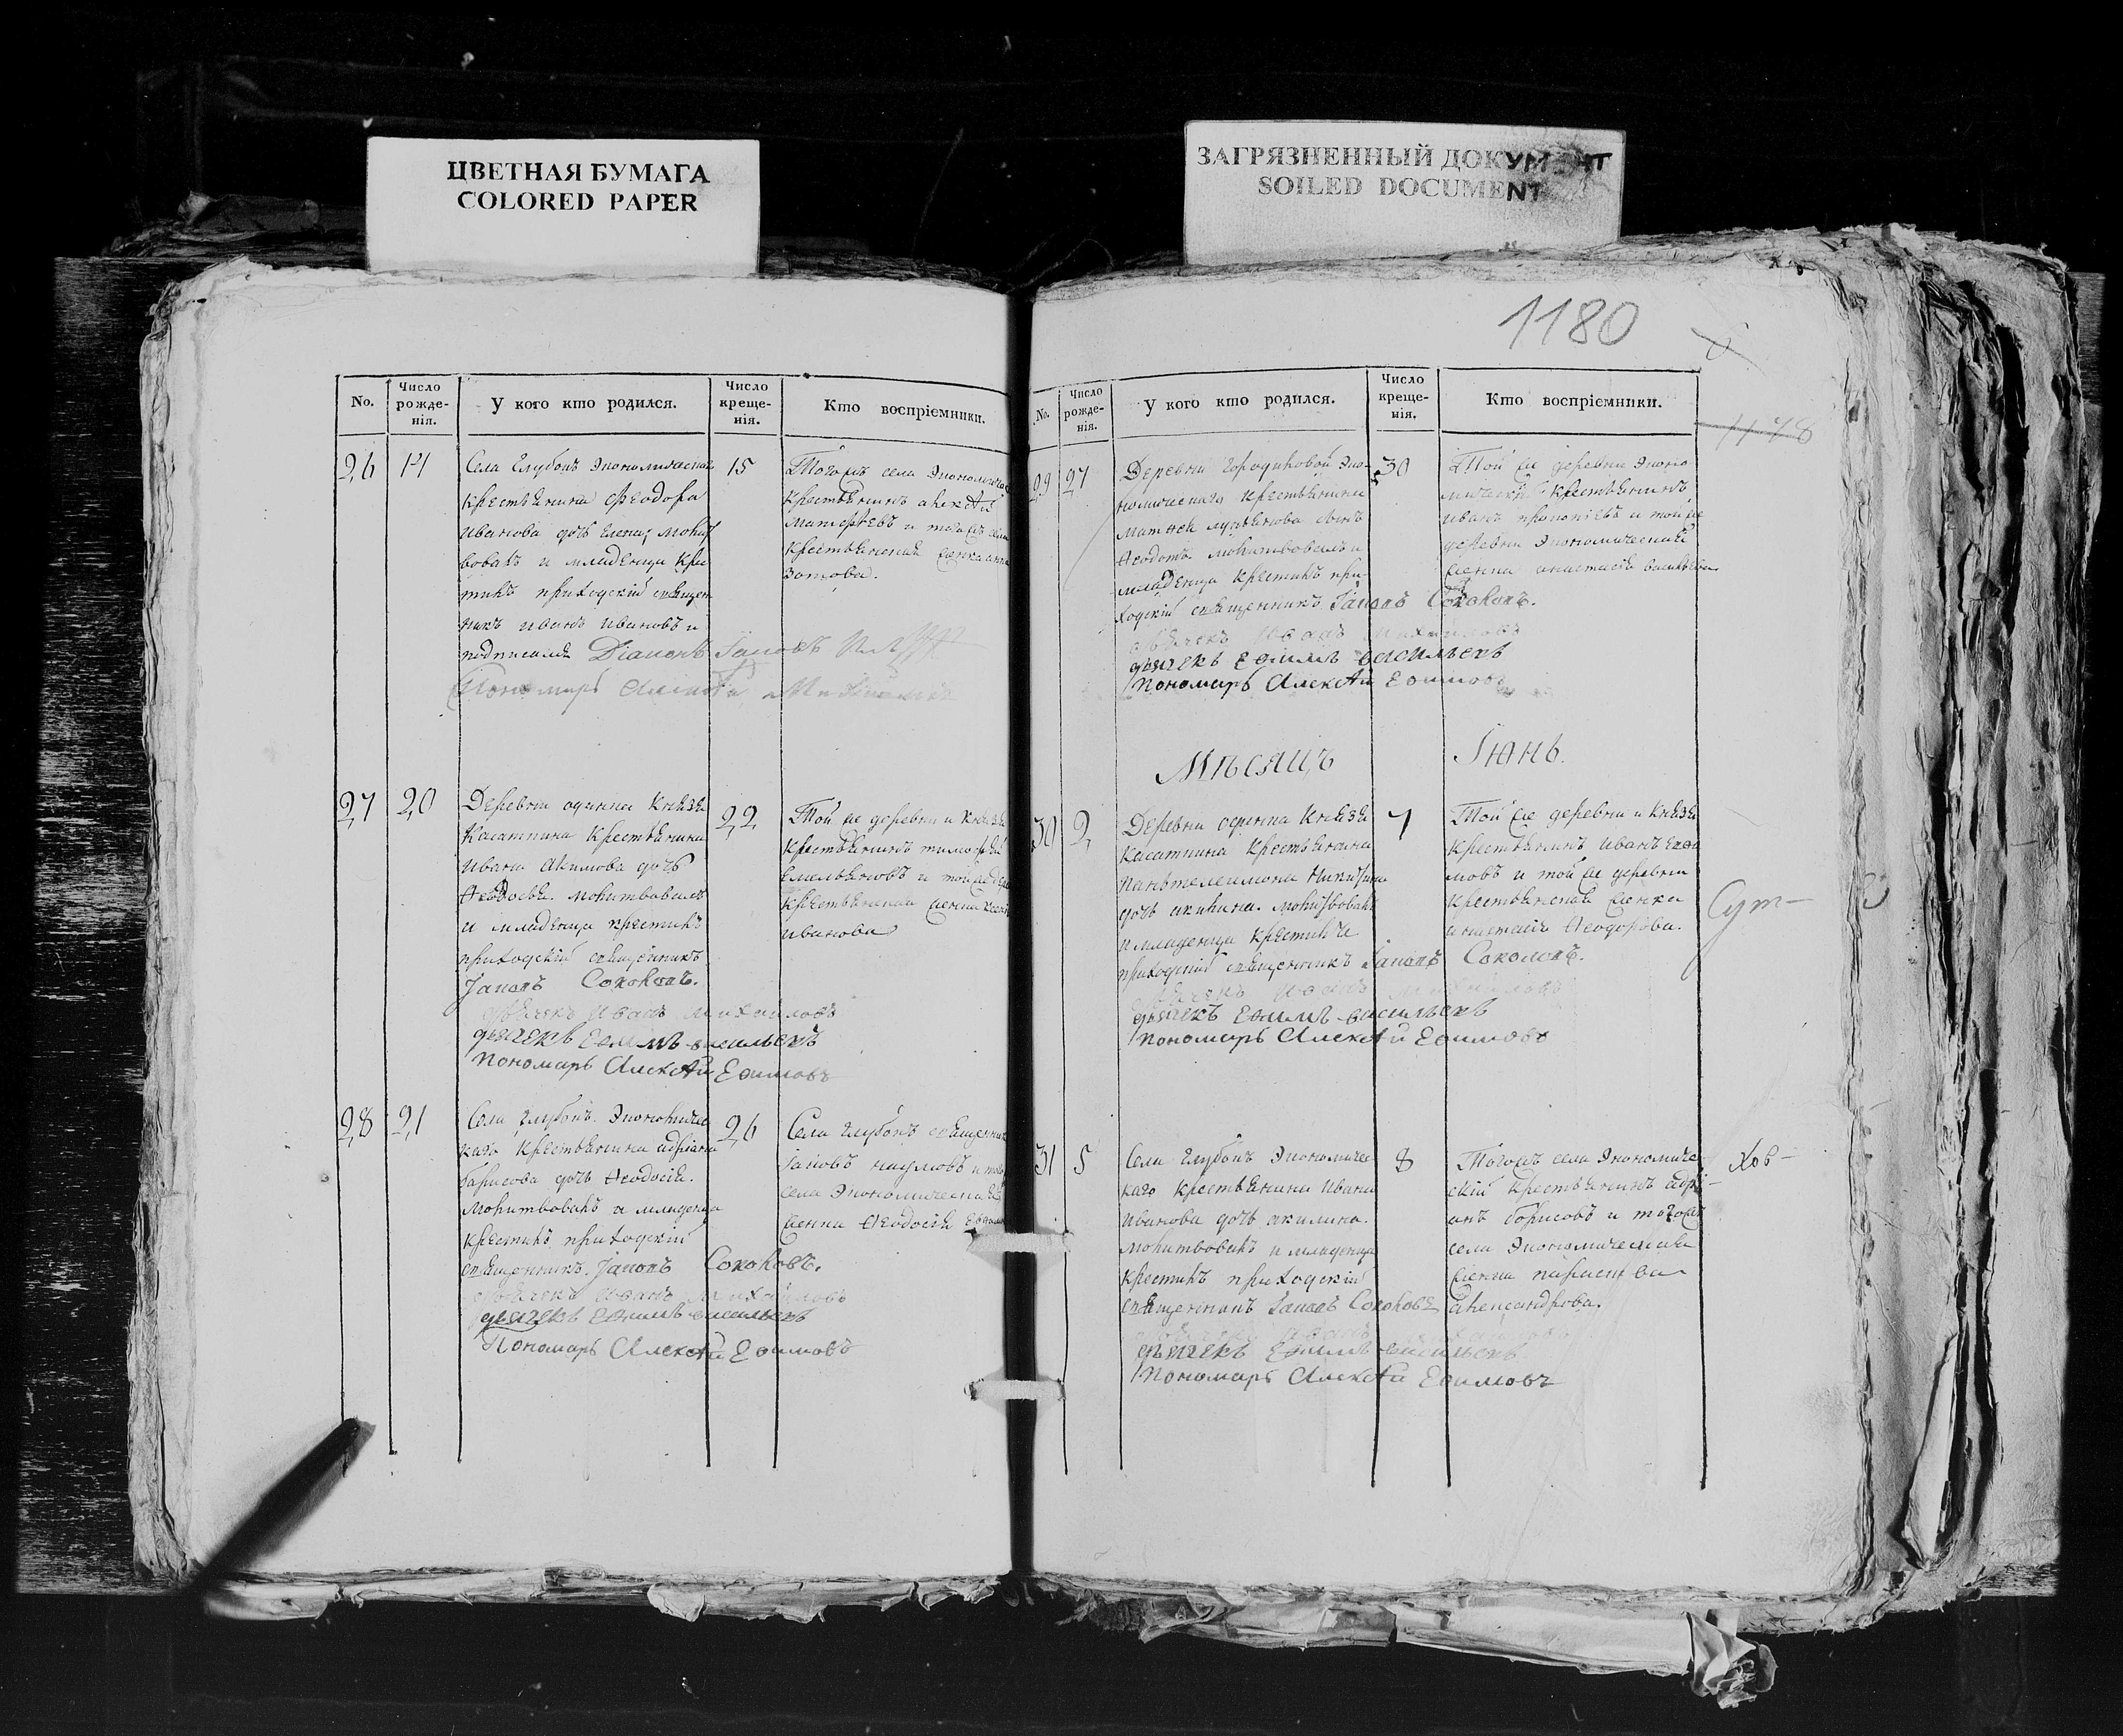 ЦВЕТНАЯ БУМАГА
COLORED PAPER
ЗАГРЯЗНЕННЫЙ ДОКУМЕНТ
SOILED DOCUMENT
1180
1178
No.
Число рожде-нія.
У кого кто родился.
Число креще-нія.
Кто воспріемники.
26 14 15
Села Глубокъ Экономическаго
крестьянина Феодора
Иванова дочь Елена, молит
вовалъ и младенца кре
стилъ приходскій священ
никъ Иванъ Ивановъ и
подписался Діаконъ Іаковъ
Пономарь Алексѣй Михайловъ
Тогожъ села Экономическ
крестьянинъ алексѣй
Матфѣевъ и тогожъ села
крестьянская женка
Зотова.
27 20 22
Деревни одинка Князя
Касаткина крестьянина
Ивана Акимова дочь
Ѳеодосья. молитвовалъ
и младенца крестилъ
приходскій священникъ
Іаковъ Соколовъ.
дьячекъ Иванъ Михайловъ
дьячекъ Ефимъ васильевъ
Пономарь Алексѣй Ефимовъ
Той же деревни и Князя
крестьянинъ тимофей
Емельяновъ и той же дерев
крестьянская женка
Иванова
28 21 26
Села Глубокъ. Экономичес
каго крестьянина адріана
Борисова дочь Ѳеодосія.
молитвовалъ и младенца
крестилъ приходскій
священникъ. Іаковъ Соколовъ.
дьячекъ Иванъ Михайловъ
дьячекъ Ефимъ васильевъ
Пономарь Алексѣй Ефимовъ
Села Глубокъ священник
Іаковъ наумовъ и того
села Экономическая
женка Ѳеодосія
No.
Число рожде-нія.
У кого кто родился.
Число креще-нія.
Кто воспріемники.
29 27 30
Деревни Городиковой Эко-
номическаго крестьянина
Матѳея лукьянова сынъ
Ѳеодотъ. молитвовалъ и
младенца крестилъ при-
ходскій священникъ Іаковъ Соколовъ.
дьячекъ Иванъ Михайловъ
дьячекъ Ефимъ васильевъ
Пономарь Алексѣй Ефимовъ
Той же деревни Эконо
мическій крестьянинъ
Иванъ прокопьевъ и той же
деревни Экономическая
женка анастасія васильева
Мѣсяцъ Іюнь.
30 2 7
Деревни одинка Князя
касаткина крестьянина
Пантелеимона Никитина
дочь акилина. молитвовалъ
и младенца крестилъ
приходскій священникъ Іаковъ Соколовъ.
дьячекъ Иванъ Михайловъ
дьячекъ Ефимъ васильевъ
Пономарь Алексѣй Ефимовъ
Той же деревни и Князя
крестьянинъ Иванъ
мовъ и той же деревни
крестьянская женка
анастасія Ѳеодорова.
Сут-
31 5 8
Села Глубокъ Экономичес
каго крестьянина Ивана
Иванова дочь акилина.
молитвовалъ и младенца
крестилъ приходскій
священникъ Іаковъ Соколовъ
дьячекъ Ефимъ васильевъ
Пономарь Алексѣй Ефимовъ
Тогожъ села Экономиче
скій крестьянинъ адрі-
анъ борисовъ и тогожъ
села Экономическая
женка параскева
александрова.
Хов-